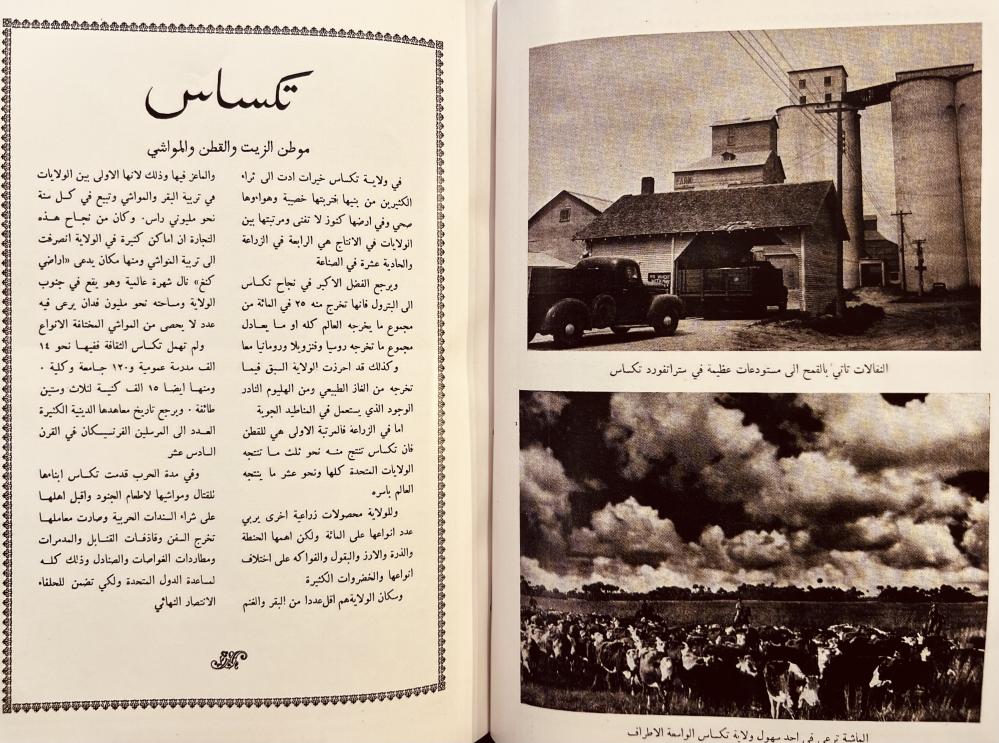 تكساس
موطن الزيت والقطن والمواشي
في ولاية تكساس خيرات ادت الى ثراء
الكثيرين من بنيها فتربتها خصبة وهواءها
صحي وفي ارضها كنوز لا تفنى ومرتبتها بين
الولايات في الانتاج هي الرابعة في الزراعة
والحادية عشرة في الصناعة
ويرجع الفضل الاكبر في نجاح تكساس
الى البترول فانها تخرج منه ٢٥ في المائة من
مجموع ما يخرجه العالم كله او ما يعادل
مجموع ما تخرجه روسيا وفنزويلا ورومانيا معا
وكذلك قد احرزت الولاية السبق فيما
تخرجه من الغاز الطبيعي ومن الهليوم النادر
الوجود الذي يستعمل في المناطيد الجوية
اما في الزراعة فالمرتبة الاولى هي للقطن
فان تكساس تنتج منه نحو ثلث ما تنتجه
الولايات المتحدة كلها ونحو عشر ما ينتجه
العالم باسره
وللولاية محصولات زراعية اخرى يربي
عدد انواعها على المائة ولكن اهمها الحنطة
والذرة والارز والبقول والفواكه على اختلاف
انواعها والخضروات الكثيرة
وسكان الولاية هم اقل عددا من البقر والغنم
والماعز فيها وذلك لانها الاولى بين الولايات
هي تربية البقر والمواشي وتبيع في كل سنة
نحو مليوني راس. وكان من نجاح هذه
التجارة ان اماكن كثيرة في الولاية انصرفت
الى تربية المواشي ومنها مكان يدعى «اراضي
كنغ» نال شهرة عالمية وهو يقع في جنوب
الولاية ومساحته نحو مليون فدان يرعى فيه
عدد لا يحصى من المواشي المختلفة الانواع
ولم تهمل تكساس الثقافة ففيها نحو ١٤
الف مدرسة عمومية و١٢٠ جامعة وكلية ٠
ومنها ايضا ١٥ الف كنيسة لثلاث وستين
طائفة ٠ ويرجع تاريخ معاهدها الدينية الكثيرة
العدد الى المرسلين الفرنسيكان في القرن
السادس عشر
وفي مدة الحرب قدمت تكساس ابناءها
للقتال ومواشيها لاطعام الجنود واقبل اهلها
على شراء السندات الحربية وصارت معاملها
تخرج السفن وقاذفات القنابل والمدمرات
ومطاردات الغواصات والصنادل وذلك كله
لمساعدة الدول المتحدة ولكي تضمن للحلفاء
الانتصار النهائي
النقالات تاتي بالقمح الى مستودعات عظيمة في ستراتفورد تكساس
الماشية ترعى في احد سهول ولاية تكساس الواسعة الاطراف